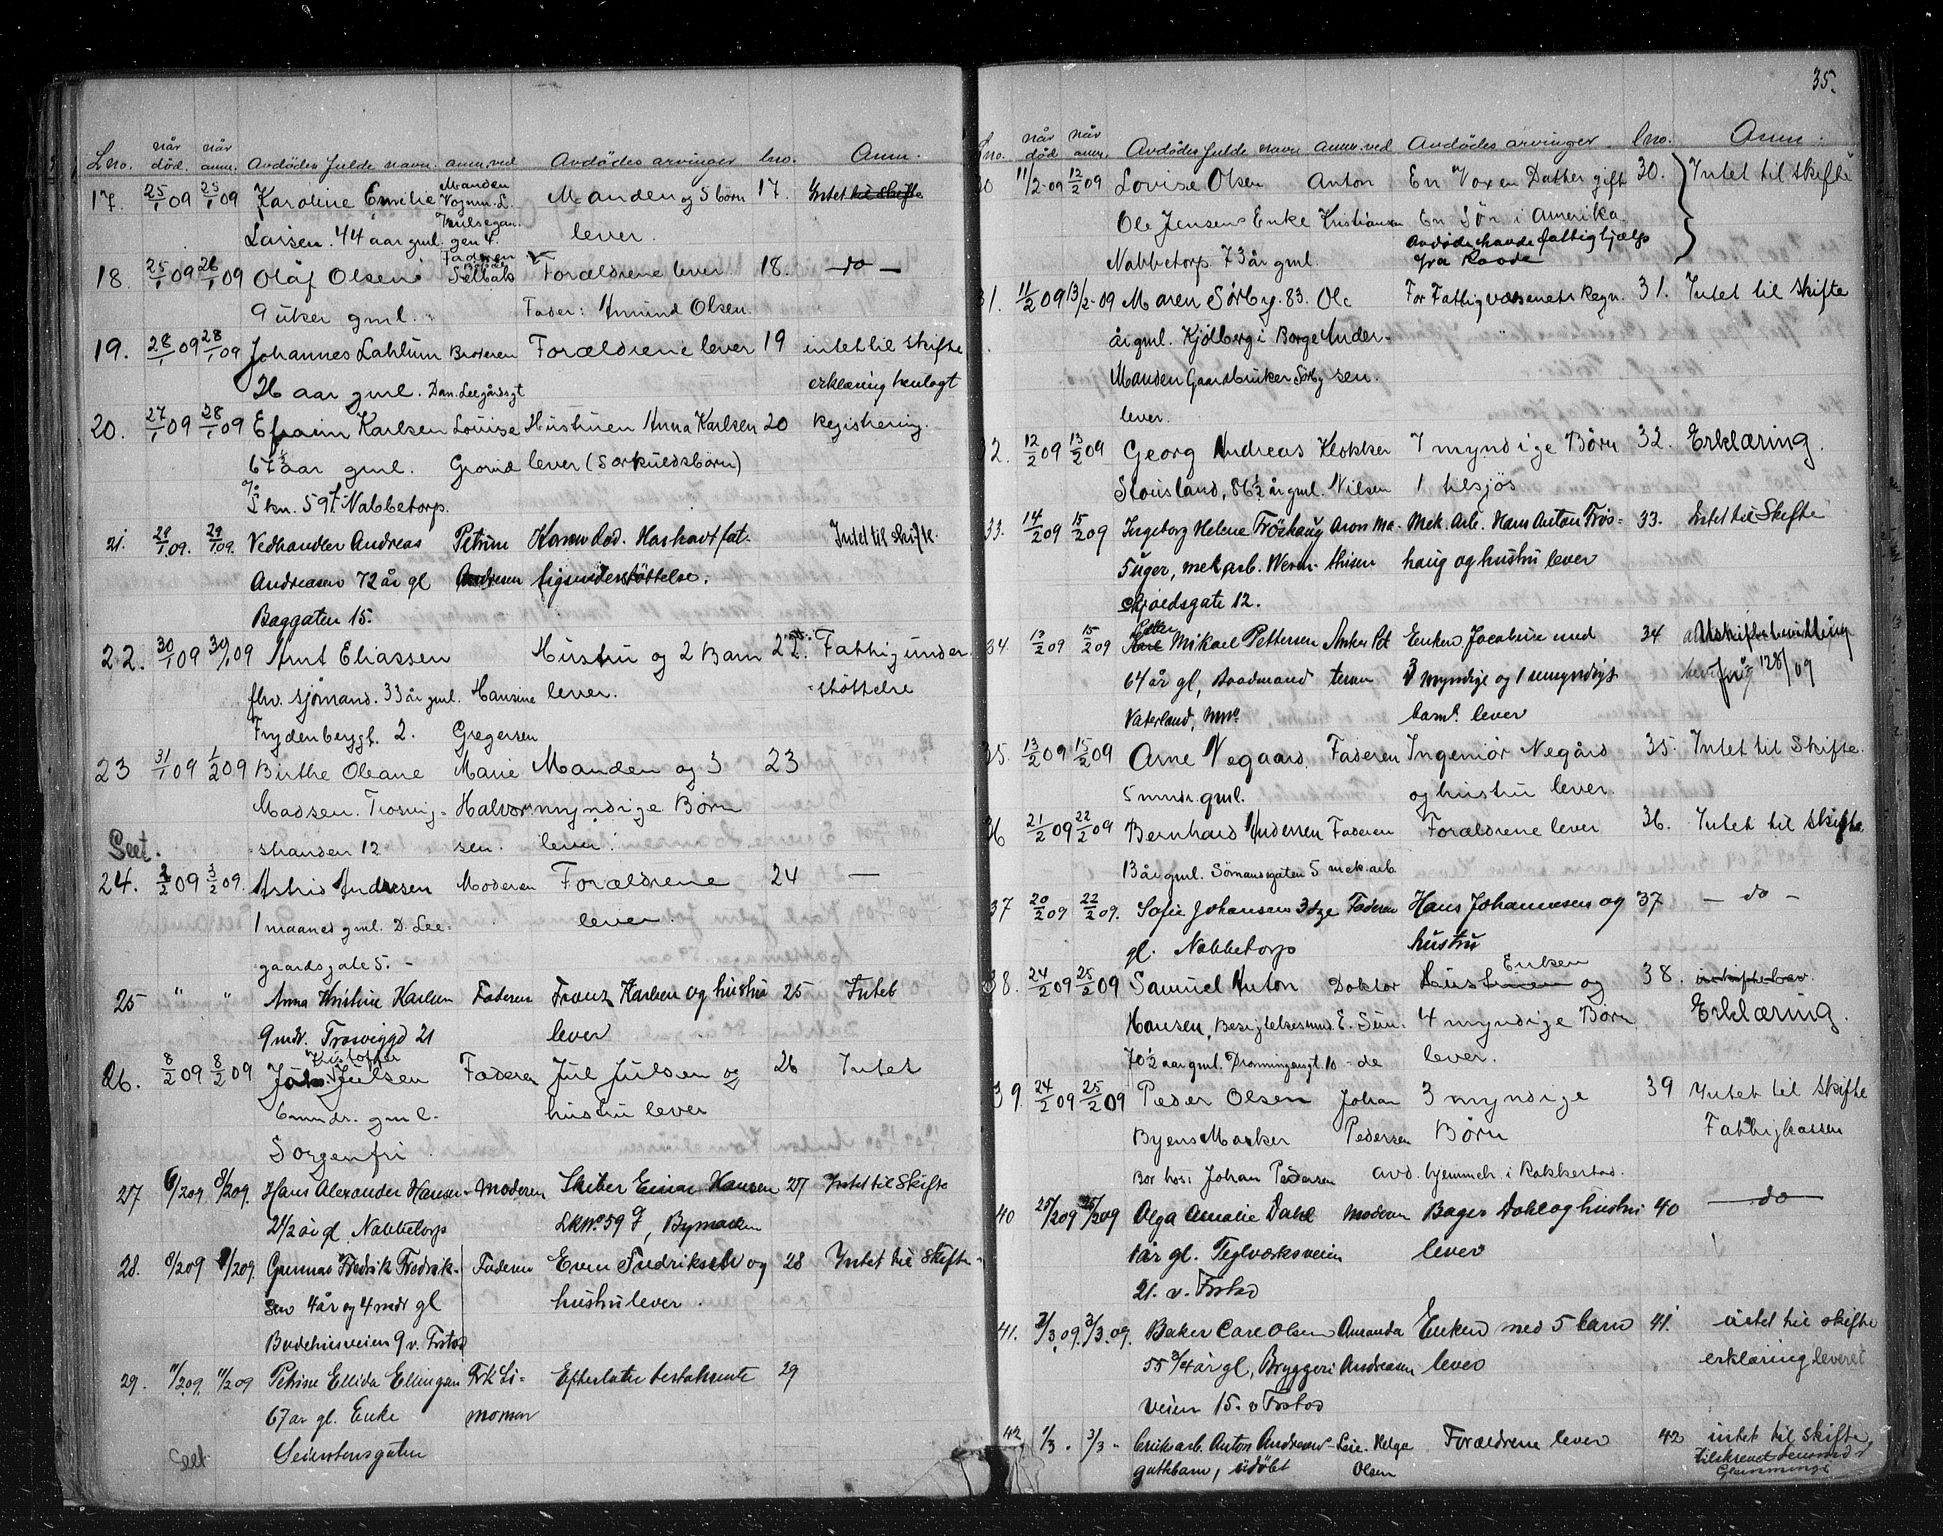 35.
Lno. når død. når anm. Avdödes fulde navn. anm. ved Avdödes arvinger lno. Anm.
17. 25/1 09 25/1 09 Karoline Emilie Manden Vognm. L. Manden og 5 börn 17. Intet til skifte
Larsen. 44 aar gml. gen 4. lever.
18. 25/1 09 26/1 09 Olaf Olsen Faderen Selbak Forældrene lever 18. - do -
9 uker gml. Fader: Amund Olsen.
19. 28/1 09 28/1 09 Johannes Lahlum Broderen Forældrene lever 19 intet til skifte
26 aar gml. Dan. Leegårdsgt erklæring henlagt
20. 27/1 09 28/1 09 Efraim Karlsen Louise Hustruen Anna Karlsen 20 Registrering.
67½ aar gml. Grorud lever (Særkuldsbörn)
Lkn. 59 f Nabbetorp.
21. 28/1 09. 29/1 09. Vedhandler Andreas Petrine Konen död. Har havt fat- Intet til skifte.
Andreasen 72 år gl Andresen tigunderstöttelse.
Baggaten 15.
22. 30/1 09 30/1 09 Arnt Eliassen Hustru og 2 Barn 22. Fattigunder-
fhv. sjömand. 33 år gml. Hansine lever. støttelse
Frydenberggt. 2. Gregersen
23 31/1 09 1/2 09 Birthe Oleane Marie Manden og 3 23
Madsen. Trosvig- Halvor- myndige Børn
stranden 12 sen. lever.
Seet.
24. 2/2 09 3/2 09. Astrid Andresen Moderen Forældrene 24 —
1 maaned gml. D. Lee- lever
gaardsgate 5. -
25 " " Anna Kristine Karlsen Faderen Franz Karlsen og hustru 25 Intet
9 mdr. Trosviggd 21 lever
26. 8/2 09 8/2 09 Kristoffer Julsen Faderen Jul Julsen og 26 Intet
6 mndr. gml. hustru lever
Sorgenfri
27 6/2 09 8/2 09. Hans Alexander Hansen Moderen Skiber Einar Hansen 27 Intet til Skifte
2 1/2 år gl. Nabbetorp LkNo 59 f, Bymarken
28. 8/2 09 9/2 09. Gunnar Fredrik Fredrik- Faderen Even Fredriksen og 28 Intet til Skifte
sen 4 år og 4 mdr gl hustru lever.
Bydehusveien 9 v. Frstad
29. 11/2 09. 11/2 09 Petrine Ellida Ellingsen Frk Si- Efterlater testamente 29
67 år gl. Enke monsen
Seierstensgaten
Seet
Lno. når død når anm. Avdödes fulde navn anm. ved Avdödes arvinger. lno. Anm.
30 11/2 09 12/2 09 Lovise Olsen Anton En voxen Datter gift 30. Intet til skifte
Ole Jensens Enke Kristiansen En Sön i Amerika.
Nabbetorp 73 år gml. Avdöde havde fattighjælp fra Raade
31. 11/2 09 13/2 09 Maren Sörby. 83. Ole For Fattigvæsenets Regn. 31. Intet til skifte
år gml. Kjölberg i Borge Ander-
Manden Gaardbruker Sörby sen.
lever.
32. 12/2 09 13/2 09 Georg Andreas Klokker 7 myndige Börn 32. Erklæring.
Stousland, 86½ år gml. Nilsen 1 tilsjös
33. 14/2 09 15/2 09 Ingeborg Helene Fröshaug Aron Ma- Mek. Arb. Hans Anton Frös- 33. Intet til Skifte
5 uger, mek arb. Weren- thisen haug og hustru lever
skjoldsgate 12.
34. 13/2 09 15/2 09 Mikael Pettersen Anker Pet Enken Jacobine med 34
64 år gl, Baadmand tersen 3 myndige og 1 umyndigt 128/09
Vaterland, barn lever
35. 13/2 09 15/2 09 Arne Negaard. Faderen Ingeniör Negård 35. Intet til Skifte.
5 mndr. gml. og hustru lever.
36 21/2 09 22/2 09 Bernhard Andersen Faderen Forældrene lever 36. Intet til skifte
13 år gml. Sömandsgaten 5 mek. arb.
37 20/2 09 22/2 09. Sofie Johansen 3 dge Faderen Hans Johannesen og 37 - do -
gl. Nabbetorp hustru
38. 24/2 09 25/2 09 Samuel Anton Doktor Hustruen Enken og 38.
Hansen, Besigtelsesmnd. E. Sun- 4 myndige Börn Erklæring.
70½ aar gml. Dronningensgt. 10 -de lever.
39. 24/2 09 25/2 09 Peder Olsen Johan 3 myndige 39 Intet til skifte
Byens Marker Pedersen Börn Fattigkassen
Bor hos: Johan Pedersen avd. hjemmeh. i Rakkestad.
40 25/2 09 25/2 09 Olga Amalie Dahl Moderen Bager Dahl og hustru 40 - do -
1 år gl. Teglværksveien lever
21. v. Frstad
41. 2/3. 09. 3/3. 09. Baker Carl Olsen Amanda Enken med 5 barn 41. intet til skifte
55 3/4 år gl, Bryggeri- Andresen lever erklæring leveret
veien 15. v Frstad
42 1/3. 3/3 - Anton Andersens Leie. Helge Forældrene lever 42 intet til skifte,
guttbarn, udöbt Olsen Glemminge